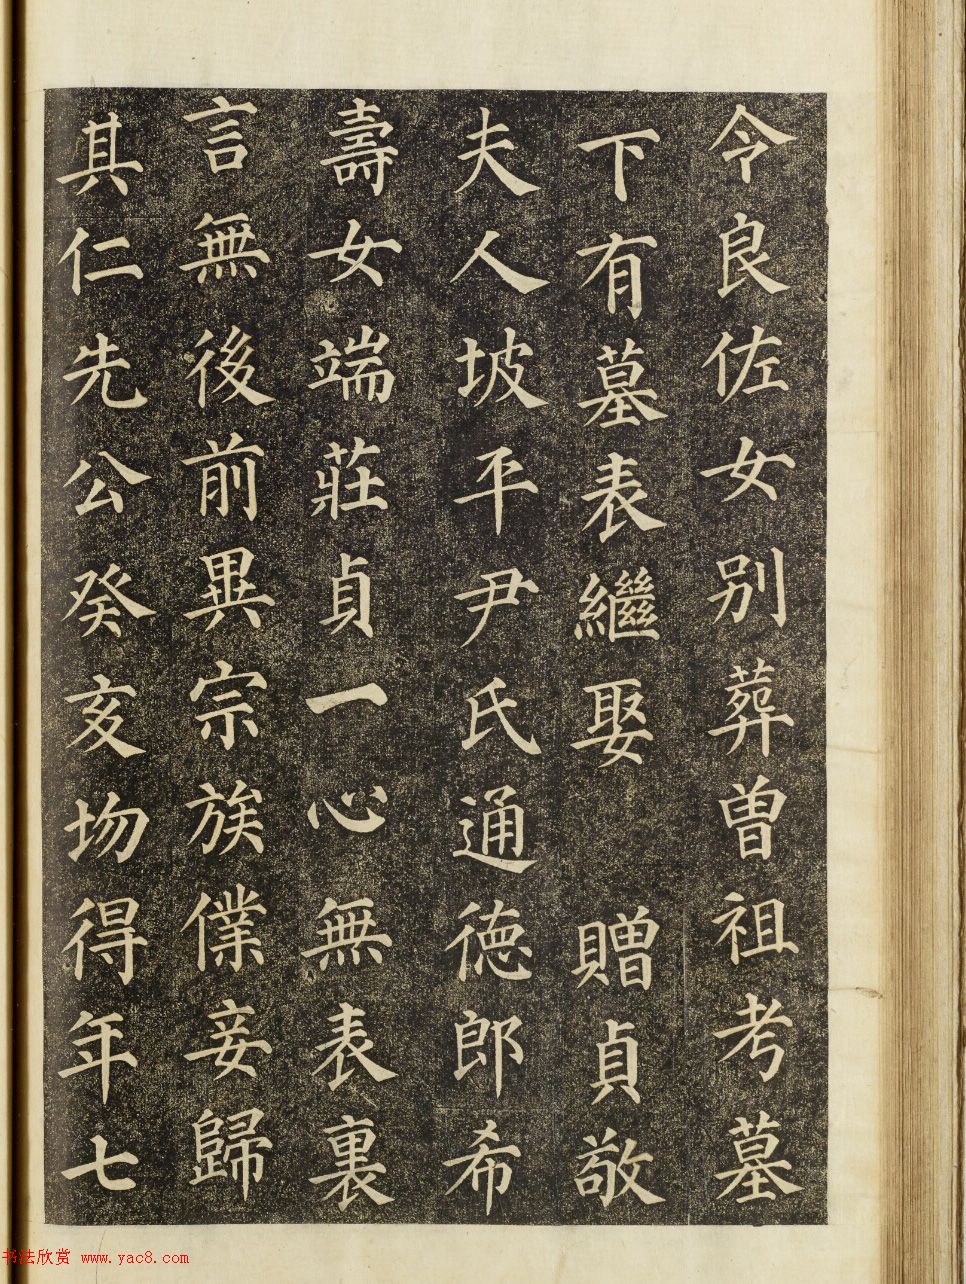 令良佐女別葬曽祖考墓
下有墓表繼娶　贈貞敬
夫人坡平尹氏通徳郎希
壽女端莊貞一心無表裏
言無後前異宗族僕妾歸
其仁先公癸亥歾得年七
书法欣赏 www.yac8.com